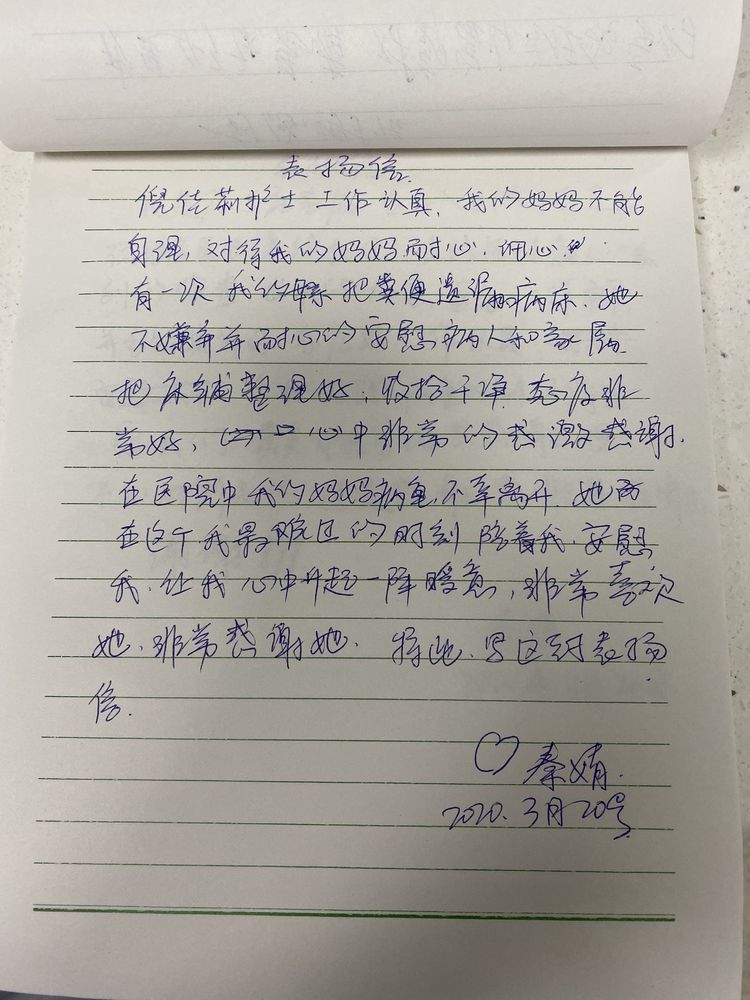 表扬信.
倪佳莉护士工作认真, 我的妈妈不能
自理, 对待我的妈妈耐心. 细心.
有一次我的母亲把粪便遗漏病床. 她
不嫌弃并耐心的安慰病人和家属.
把床铺整理好, 收拾干净 态度非
常好, 心中非常的感激感谢.
在医院中我的妈妈病危, 不幸离开. 她
在这个我最难过的时刻 陪着我. 安慰
我. 让我心中升起一阵暖意, 非常喜欢
她. 非常感谢她. 特此. 写这封表扬
信.
秦婧.
2020. 3月20号